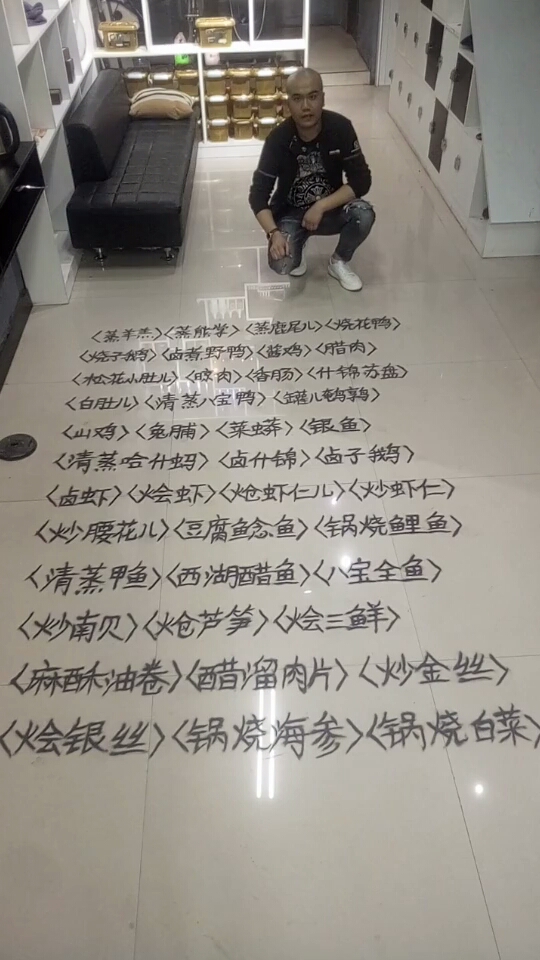 〈蒸羊羔〉〈蒸熊掌〉〈蒸鹿尾儿〉〈烧花鸭〉
〈烧子鹅〉〈卤煮野鸭〉〈酱鸡〉〈腊肉〉
〈松花小肚儿〉〈晾肉〉〈香肠〉〈什锦苏盘〉
〈白肚儿〉〈清蒸八宝鸭〉〈罐儿鹌鹑〉
〈山鸡〉〈兔脯〉〈菜蟒〉〈银鱼〉
〈清蒸哈什蚂〉〈卤什锦〉〈卤子鹅〉
〈卤虾〉〈烩虾〉〈炝虾仁儿〉〈炒虾仁〉
〈炒腰花儿〉〈豆腐鲶鱼〉〈锅烧鲤鱼〉
〈清蒸甲鱼〉〈西湖醋鱼〉〈八宝全鱼〉
〈炒南贝〉〈炝芦笋〉〈烩三鲜〉
〈麻酥油卷〉〈醋溜肉片〉〈炒金丝〉
〈烩银丝〉〈锅烧海参〉〈锅烧白菜〉